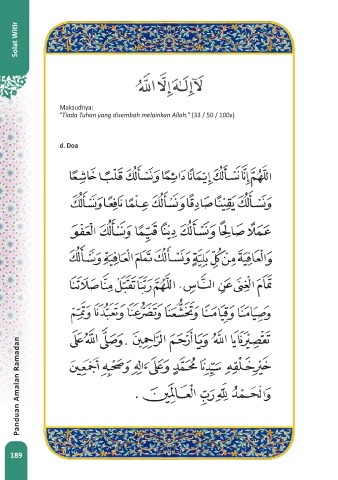 Solat Witir
لَآ إِلَـٰهَ إِلَّا اللَّهُ
Maksudnya:
"Tiada Tuhan yang disembah melainkan Allah." (33 / 50 / 100x)
d. Doa
اللَّهُمَّ إِنَّا نَسْأَلُكَ إِيْمَانًا دَائِمًا وَنَسْأَلُكَ قَلْبًا خَاشِعًا
وَنَسْأَلُكَ يَقِيْنًا صَادِقًا وَنَسْأَلُكَ عِلْمًا نَافِعًا وَنَسْأَلُكَ
عَمَلًا صَالِحًا وَنَسْأَلُكَ دِيْنًا قَيِّمًا وَنَسْأَلُكَ الْعَفْوَ
وَالْعَافِيَةَ مِنْ كُلِّ بَلِيَّةٍ وَنَسْأَلُكَ تَمَامَ الْعَافِيَةِ وَنَسْأَلُكَ
تَمَامَ الْغِنَى عَنِ النَّاسِ. اللَّهُمَّ رَبَّنَا تَقَبَّلْ مِنَّا صَلَاتَنَا
وَصِيَامَنَا وَقِيَامَنَا وَتَخَشُّعَنَا وَتَضَرُّعَنَا وَتَعَبُّدَنَا وَتَمِّمْ
تَقْصِيْرَنَا يَا اللَّهُ وَيَا أَرْحَمَ الرَّاحِمِيْنَ. وَصَلَّى اللَّهُ عَلَى
خَيْرِ خَلْقِهِ سَيِّدِنَا مُحَمَّدٍ وَعَلَى ءَالِهِ وَصَحْبِهِ أَجْمَعِيْنَ
وَالْحَمْدُ لِلَّهِ رَبِّ الْعَالَمِيْنَ.
Panduan Amalan Ramadan
189